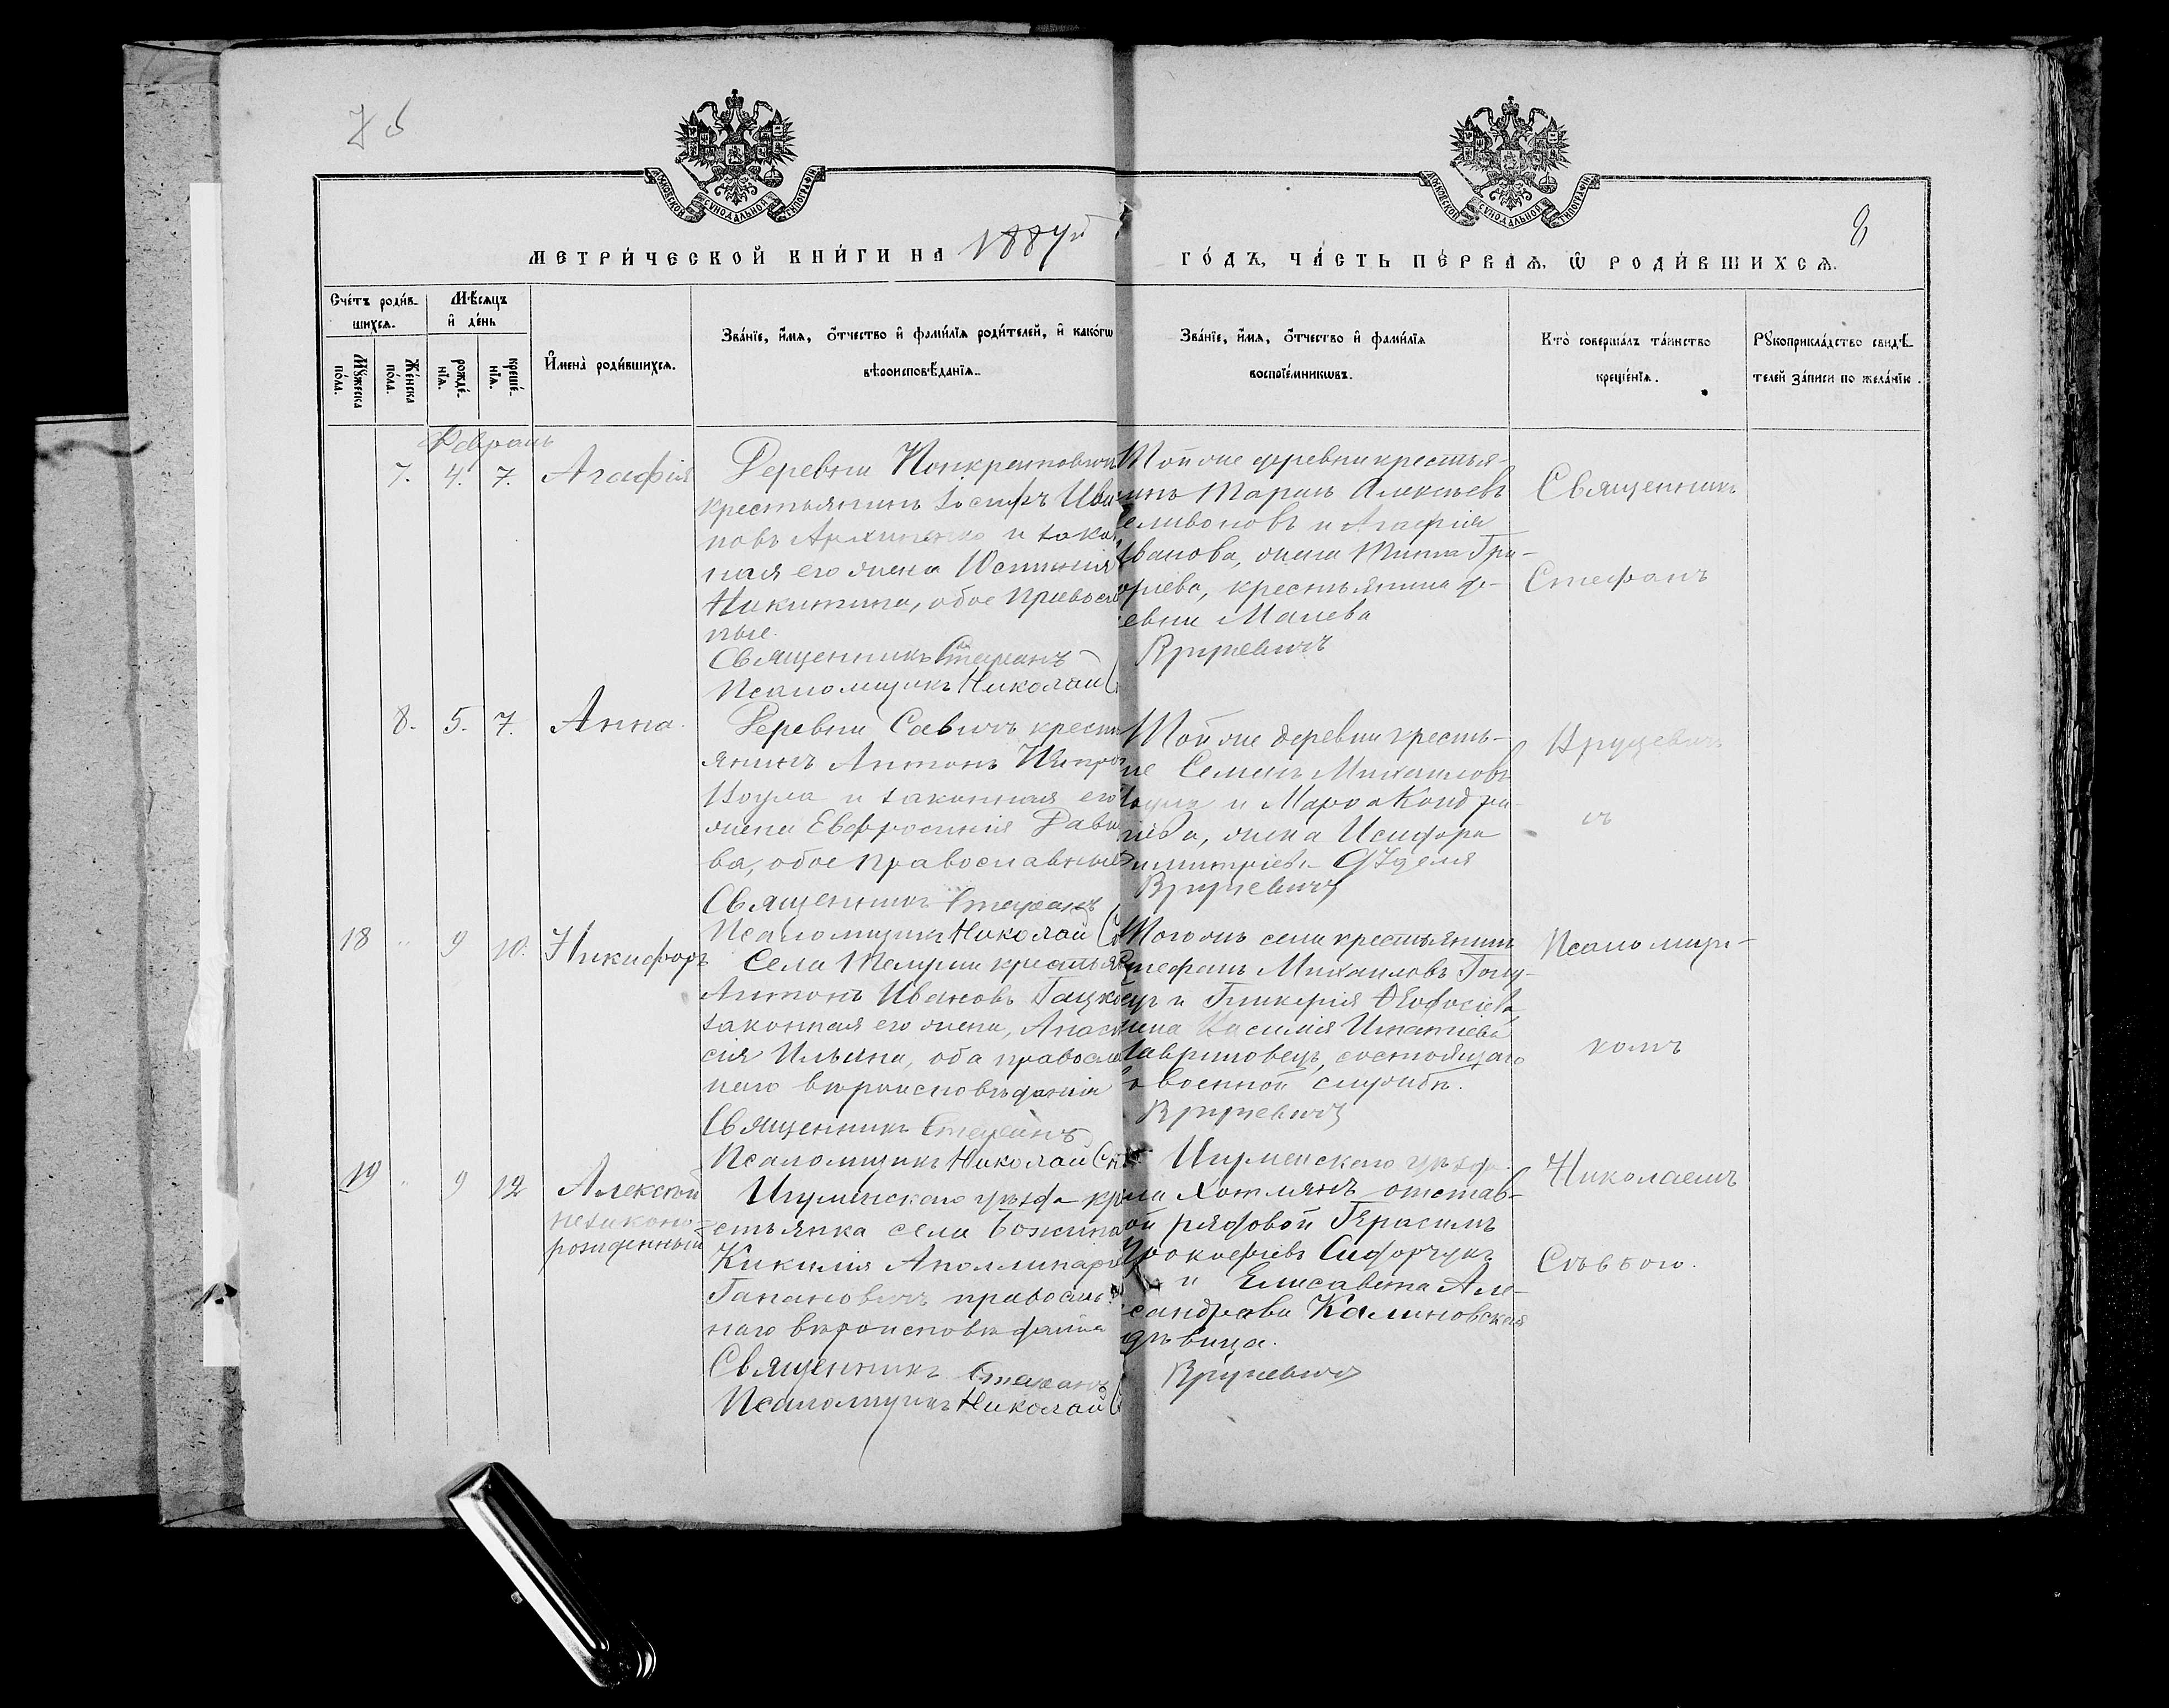 МЕТРИ́ЧЕСКОЙ КНИ́ГИ НА 1887й
ГО́ДЪ, ЧА́СТЬ ПЕ́РВАѦ, Ѡ РОДИ́ВШИХСѦ.
8
Сче́тъ роди́в-
шихсѧ.
Мѣ́сѧцъ
и҆ де́нь
Мꙋ́жеска
по́ла.
Же́нска
по́ла.
рожде́-
нїѧ.
креще́-
нїѧ.
И҆мена̀ роди́вшихсѧ.
Зва́нїе, и҆́мѧ, ѻ҆́тчество и҆ фами́лїѧ роди́телей, и҆ како́гѡ
вѣроисповѣ́данїѧ.
Зва́нїе, и҆́мѧ, ѻ҆́тчество и҆ фами́лїѧ
воспрїе́мникѡвъ.
Кто̀ соверша́лъ та́инство
креще́нїѧ.
Рꙋкоприкла́дство свидѣ́-
телей за́писи по жела́нїю.
Февраль
7. 4. 7. Агафія
Деревни
крестьянинъ Іосифъ Ива
новъ и закон
ная его жена Іустинія
Никитина, обое Правосла
ные.
Священникъ Стефанъ
Псаломщикъ Николай
Той же деревни крестья-
нинъ Тарасъ Алексѣевъ
и Агафія
Иванова, жена Тита Гри-
горіева, крестьянина де-
ревни Малева
Вручевичъ
Священникъ
Стефанъ
8. 5. 7. Анна.
Деревни Савичъ кресть
янинъ Антонъ
и законная его
жена Евфросинія Дави
ва, обое православные
Священникъ Стефанъ
Псаломщикъ Николай
Той же деревни кресть-
не Семенъ Михаиловъ
и Марѳа Кондра-
тіева, жена Исидора
Димитріева
Вручевичъ
Вручевич
ъ
18 " 9 10. Никифоръ
Села крестья
Антонъ Ивановъ Гацко
законная его жена, Анаста
сія Ильина, оба правосла
наго вѣроисповѣданія
Священникъ Стефанъ
Псаломщикъ Николай
Того же села крестьянинъ
Стефанъ Михаиловъ
и Гликерія Ѳеодосіева
жена Василія Игнатіева
Гавриловецъ, состоящаго
в военной службѣ.
Вручевичъ
Псаломщи-
комъ
19 " 9 12 Алексѣй
незаконо-
рожденный
Игуменскаго уѣзда кре
стьянка села Божина
Кикилія Аполлинарі
Гапановичъ правосла
наго вѣроисповѣданія
Священникъ Стефанъ
Псаломщикъ Николай
Игуменскаго уѣзда
ла Хотлянъ отстав-
ой рядовой Герасимъ
Прокофіевъ Сидорчукъ
и Елисавета Але-
сандрова Калиновская
дѣвица.
Вручевичъ
Николаемъ